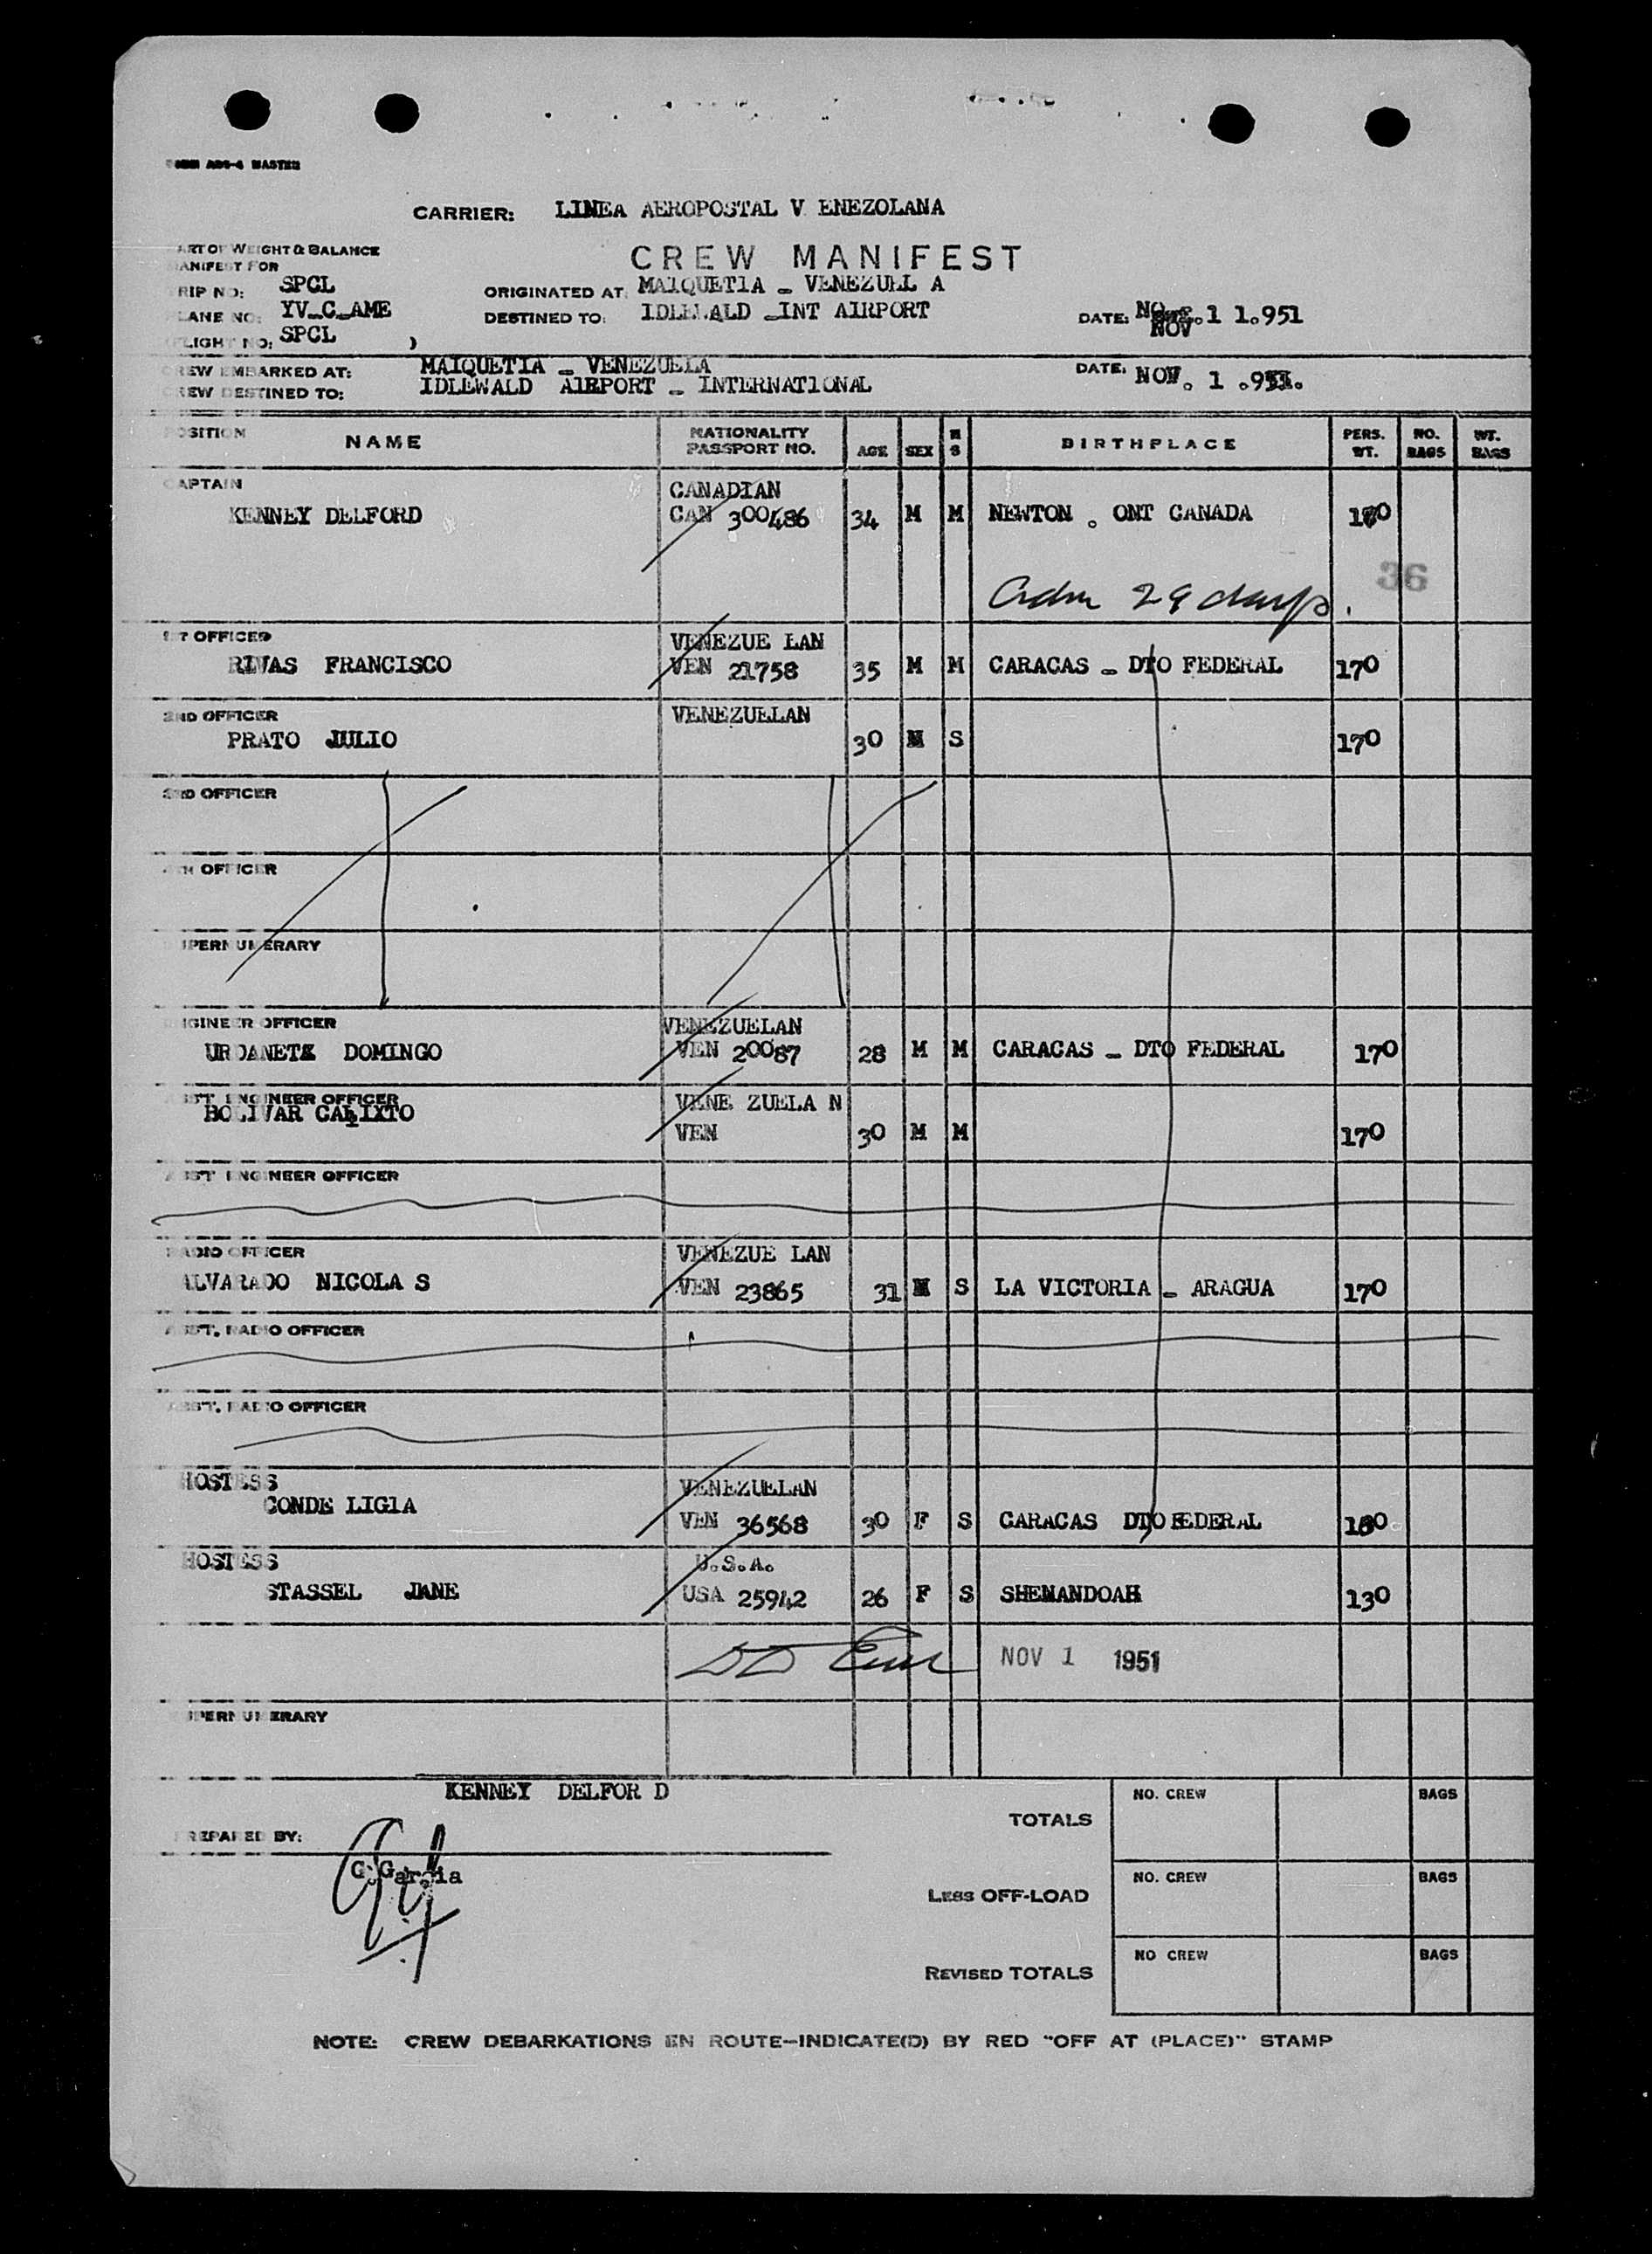 FORM ADS-4 MASTER
CARRIER: LINEA AEROPOSTAL V ENEZOLANA
ART OF WEIGHT & BALANCE
ANIFEST FOR
CREW MANIFEST
RIP NO: SPCL
ORIGINATED AT: MAIQUETIA - VENEZUEL A
LANE NO: YV-C-AME
DESTINED TO: IDLEWALD -INT AIRPORT
DATE: NOV.1 1.951
NOV
FLIGHT NO: SPCL )
CREW EMBARKED AT: MAIQUETIA - VENEZUELA
DATE: NOV. 1 .951.
CREW DESTINED TO: IDLEWALD AIRPORT - INTERNATIONAL
POSITION NAME NATIONALITY PASSPORT NO. AGE SEX M S BIRTHPLACE PERS. WT. NO. BAGS WT. BAGS
CAPTAIN CANADIAN
KENNEY DELFORD CAN 300486 34 M M NEWTON . ONT CANADA 170
36
Adm 29 days.
1ST OFFICER VENEZUE LAN
RIVAS FRANCISCO VEN 21758 35 M M CARACAS - DTO FEDERAL 170
2ND OFFICER VENEZUELAN
PRATO JULIO 30 M S 170
3RD OFFICER
4TH OFFICER
SUPERNUMERARY
ENGINEER OFFICER VENEZUELAN
URDANETA DOMINGO VEN 20087 28 M M CARACAS - DTO FEDERAL 170
ASST ENGINEER OFFICER VENE ZUELA N
BOLIVAR CALIXTO VEN 30 M M 170
ASST ENGINEER OFFICER
RADIO OFFICER VENEZUE LAN
ALVARADO NICOLA S VEN 23865 31 M S LA VICTORIA - ARAGUA 170
ASST. RADIO OFFICER
ASST. RADIO OFFICER
HOSTESS VENEZUELAN
CONDE LIGIA VEN 36568 30 F S CARACAS DTO FEDERAL 130
HOSTESS U.S.A.
STASSEL JANE USA 25942 26 F S SHENANDOAH 130
NOV 1 1951
SUPERNUMERARY
KENNEY DELFOR D
TOTALS NO. CREW BAGS
PREPARED BY:
C.Garcia
LESS OFF-LOAD NO. CREW BAGS
REVISED TOTALS NO CREW BAGS
NOTE: CREW DEBARKATIONS EN ROUTE—INDICATE(D) BY RED "OFF AT (PLACE)" STAMP